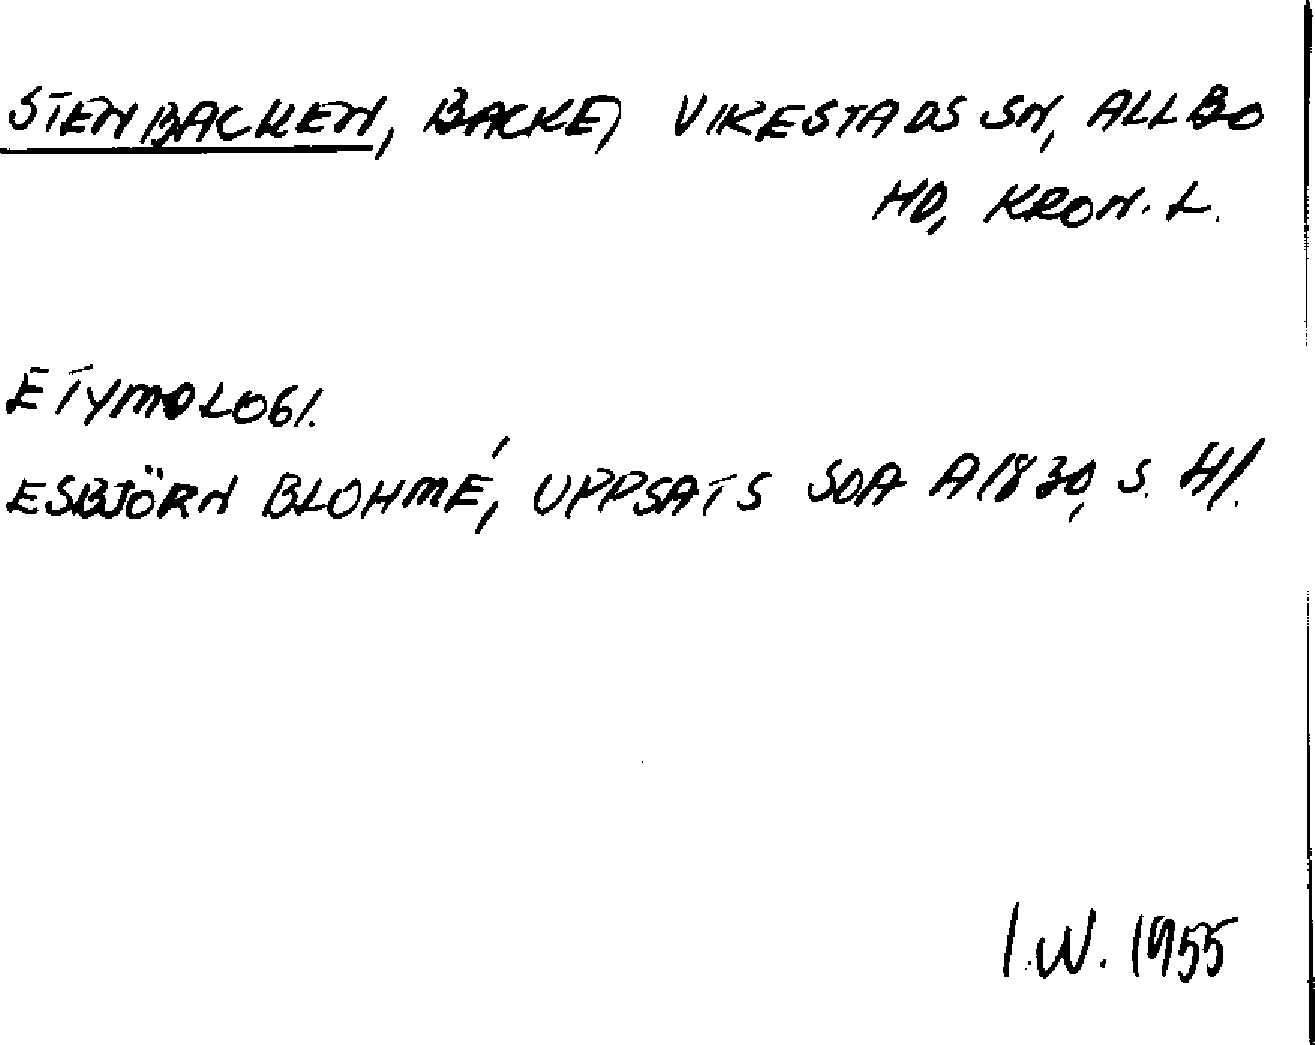 STENBACKEN, BACKE, VIKESTADS SN, ALLBO
HD, KRON. L.
ETYMOLOGI.
ESBJÖRN BLOHMÉ, UPPSATS SOA A1830, S. 41.
I.W. 1955